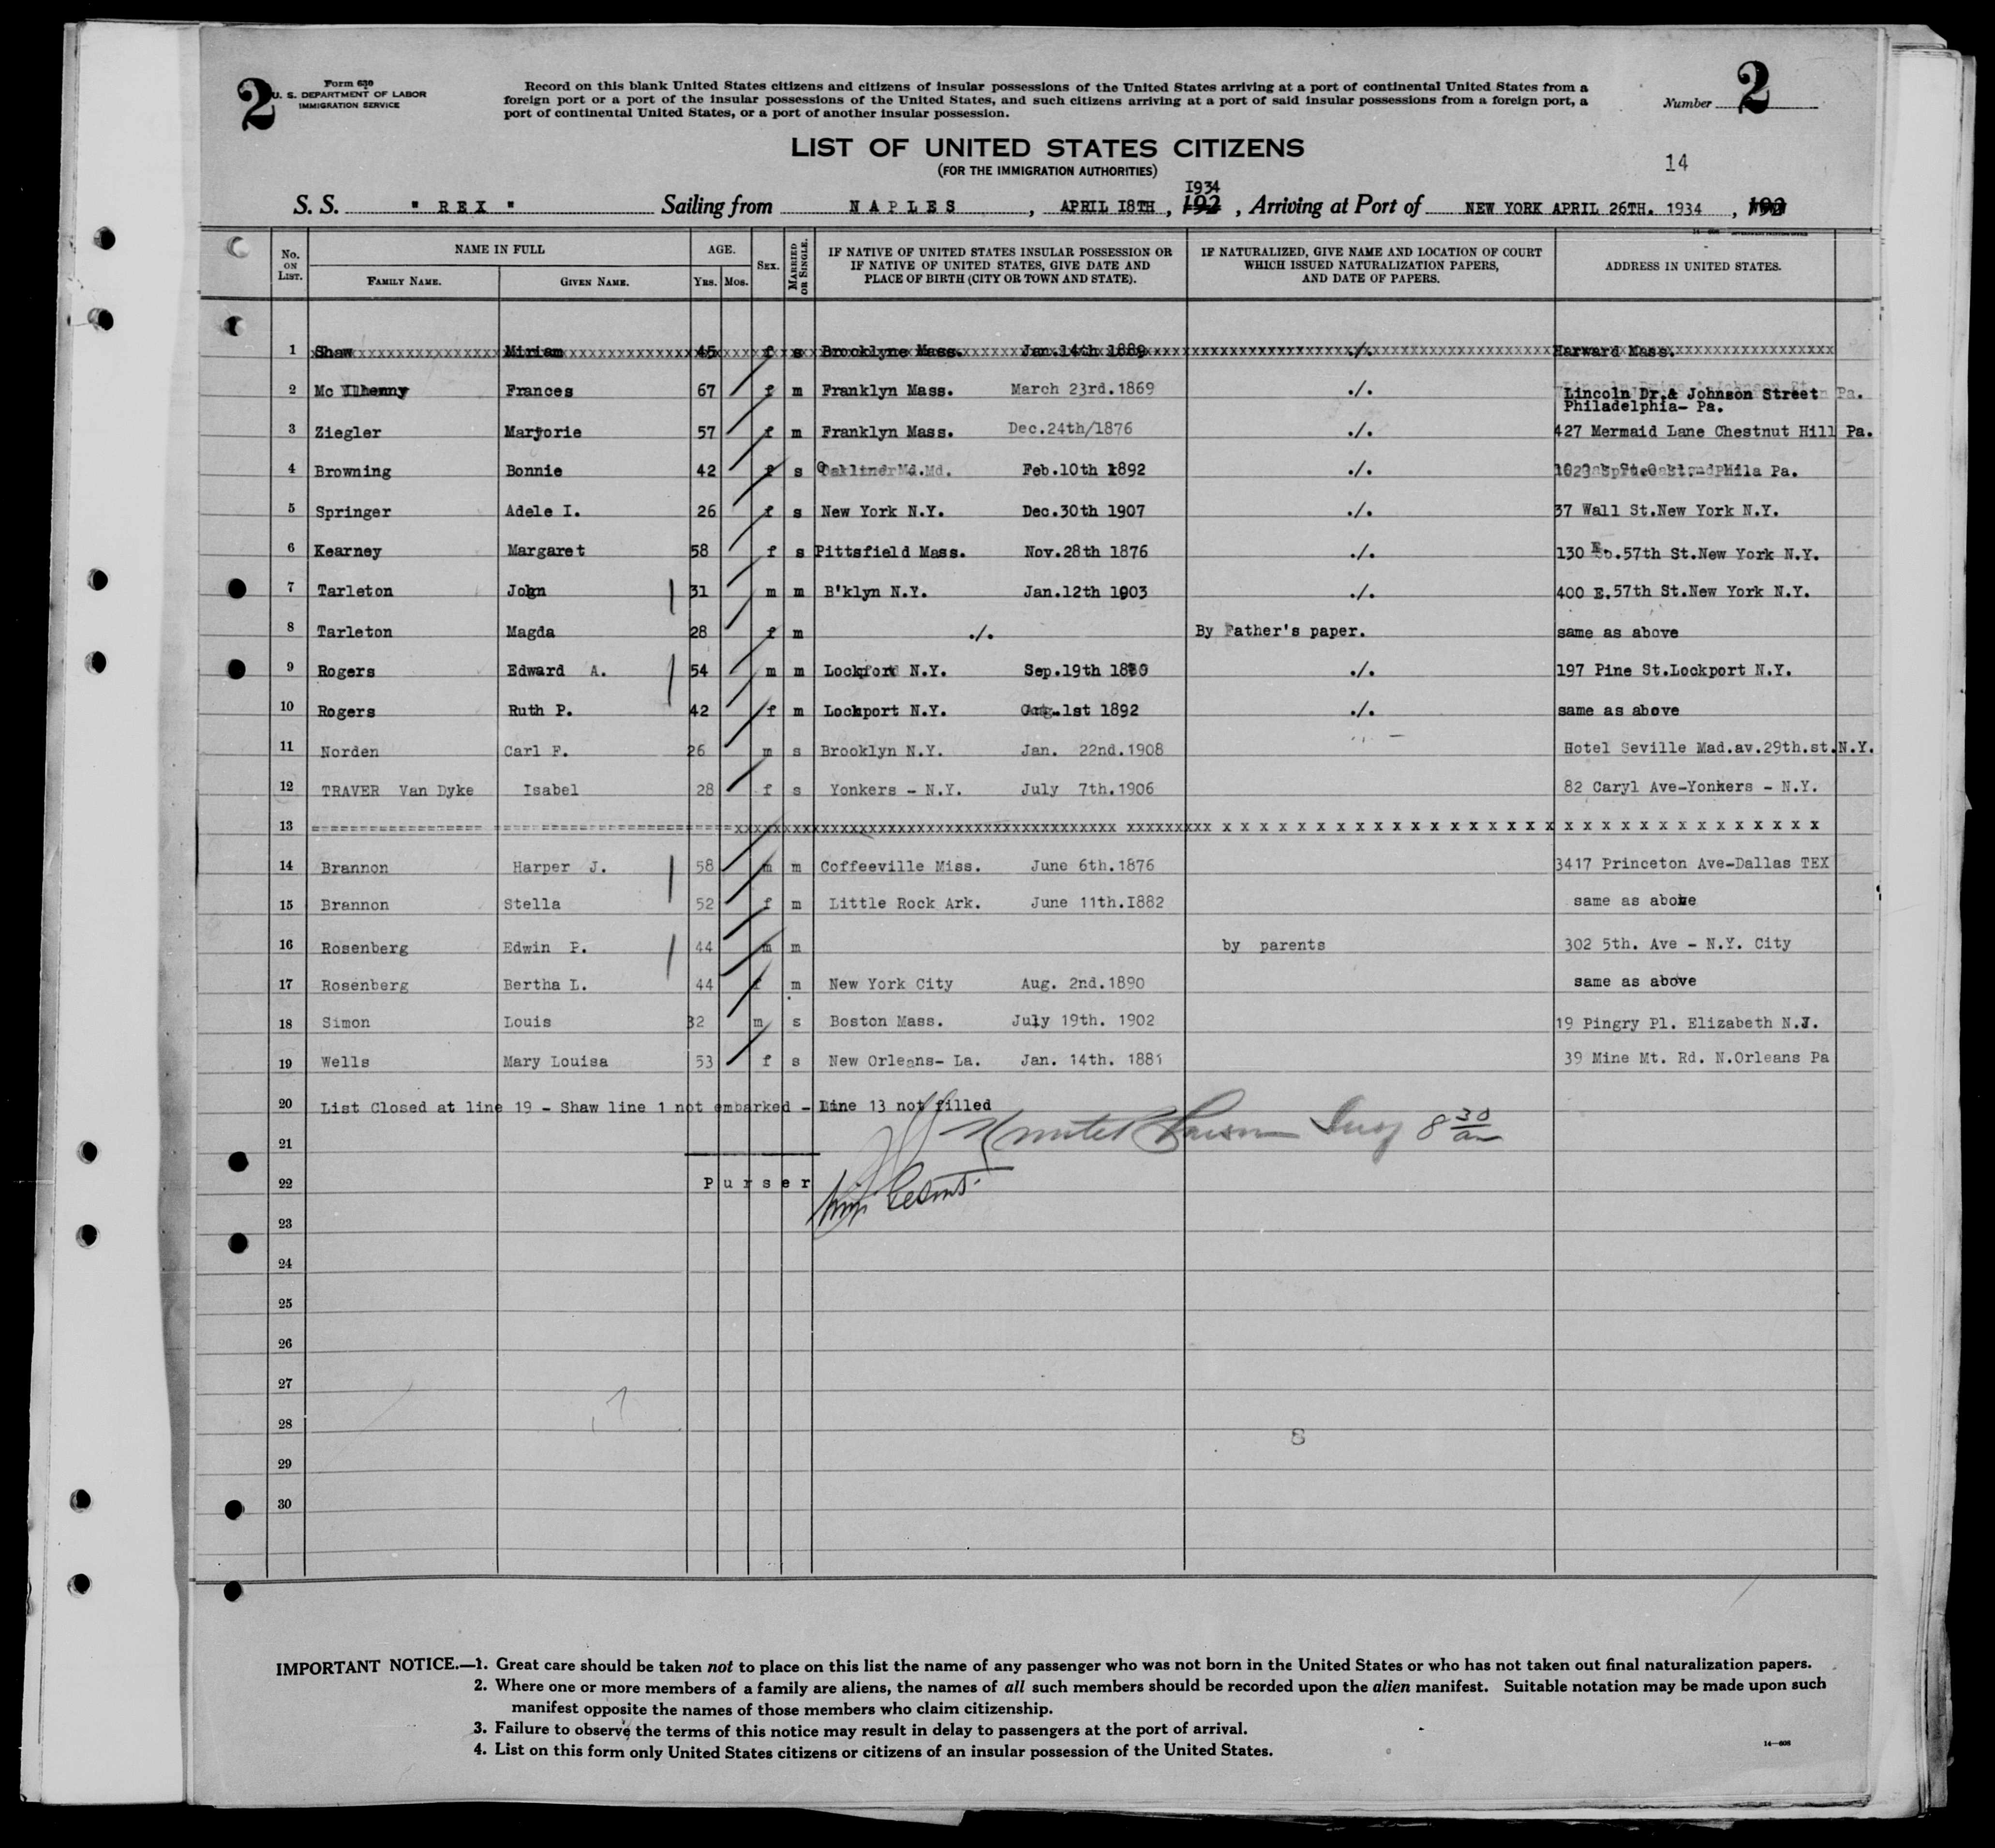 2
Form 630
U. S. DEPARTMENT OF LABOR
IMMIGRATION SERVICE
Record on this blank United States citizens and citizens of insular possessions of the United States arriving at a port of continental United States from a
foreign port or a port of the insular possessions of the United States, and such citizens arriving at a port of said insular possessions from a foreign port, a
port of continental United States, or a port of another insular possession.
Number 2
LIST OF UNITED STATES CITIZENS
(FOR THE IMMIGRATION AUTHORITIES)
14
S. S. " REX " Sailing from NAPLES , APRIL I8TH , 192 1934 , Arriving at Port of NEW YORK APRIL 26TH. 1934 , 192
No. ON LIST. NAME IN FULL FAMILY NAME. GIVEN NAME. AGE. YRS. MOS. SEX. MARRIED OR SINGLE. IF NATIVE OF UNITED STATES INSULAR POSSESSION OR IF NATIVE OF UNITED STATES, GIVE DATE AND PLACE OF BIRTH (CITY OR TOWN AND STATE). IF NATURALIZED, GIVE NAME AND LOCATION OF COURT WHICH ISSUED NATURALIZATION PAPERS, AND DATE OF PAPERS. ADDRESS IN UNITED STATES.
1 Shaw Miriam 45 f s Brooklyne Mass. Jan.14th 1889 ./. Harward Mass.
2 Mc Ilhenny Frances 67 f m Franklyn Mass. March 23rd.1869 ./. Lincoln Dr.& Johnson Street Pa.
Philadelphia- Pa.
3 Ziegler Marjorie 57 f m Franklyn Mass. Dec.24th/1876 ./. 427 Mermaid Lane Chestnut Hill Pa.
4 Browning Bonnie 42 f s Md. Feb.10th 1892 ./. Phila Pa.
5 Springer Adele I. 26 f s New York N.Y. Dec.30th 1907 ./. 37 Wall St.New York N.Y.
6 Kearney Margaret 58 f s Pittsfield Mass. Nov.28th 1876 ./. 130 E.57th St.New York N.Y.
7 Tarleton John 31 m m B'klyn N.Y. Jan.12th 1903 ./. 400 E.57th St.New York N.Y.
8 Tarleton Magda 28 f m ./. By Father's paper. same as above
9 Rogers Edward A. 54 m m Lockport N.Y. Sep.19th 1880 ./. 197 Pine St.Lockport N.Y.
10 Rogers Ruth P. 42 f m Lockport N.Y. 1st 1892 ./. same as above
11 Norden Carl F. 26 m s Brooklyn N.Y. Jan. 22nd.1908 Hotel Seville Mad.av.29th.st.N.Y.
12 TRAVER Van Dyke Isabel 28 f s Yonkers - N.Y. July 7th.1906 82 Caryl Ave-Yonkers - N.Y.
13
14 Brannon Harper J. 58 m m Coffeeville Miss. June 6th.1876 3417 Princeton Ave-Dallas TEX
15 Brannon Stella 52 f m Little Rock Ark. June 11th.I882 same as above
16 Rosenberg Edwin P. 44 m m by parents 302 5th. Ave - N.Y. City
17 Rosenberg Bertha L. 44 f m New York City Aug. 2nd.1890 same as above
18 Simon Louis 32 m s Boston Mass. July 19th. 1902 19 Pingry Pl. Elizabeth N.J.
19 Wells Mary Louisa 53 f s New Orleans- La. Jan. 14th. 1881 39 Mine Mt. Rd. N.Orleans Pa
20 List Closed at line 19 - Shaw line 1 not embarked - Line 13 not filled
21 8 30 am
22 Purser
23
24
25
26
27
28
8
29
30
IMPORTANT NOTICE.—1. Great care should be taken not to place on this list the name of any passenger who was not born in the United States or who has not taken out final naturalization papers.
2. Where one or more members of a family are aliens, the names of all such members should be recorded upon the alien manifest. Suitable notation may be made upon such
manifest opposite the names of those members who claim citizenship.
3. Failure to observe the terms of this notice may result in delay to passengers at the port of arrival.
4. List on this form only United States citizens or citizens of an insular possession of the United States.
14—608